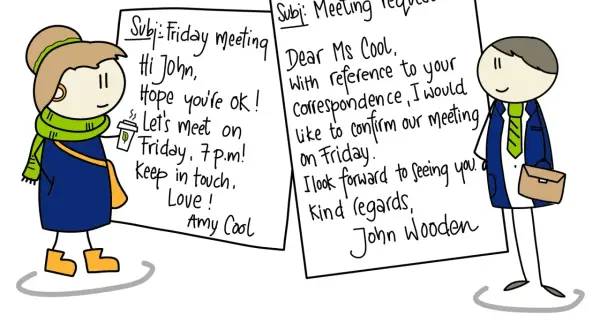 Subj: Friday meeting
Hi John,
Hope you're ok!
Let's meet on
Friday, 7 p.m!
Keep in touch,
Love!
Amy Cool
Subj: Meeting request
Dear Ms Cool,
With reference to your
correspondence, I would
like to confirm our meeting
on Friday.
I look forward to seeing you.
Kind regards,
John Wooden